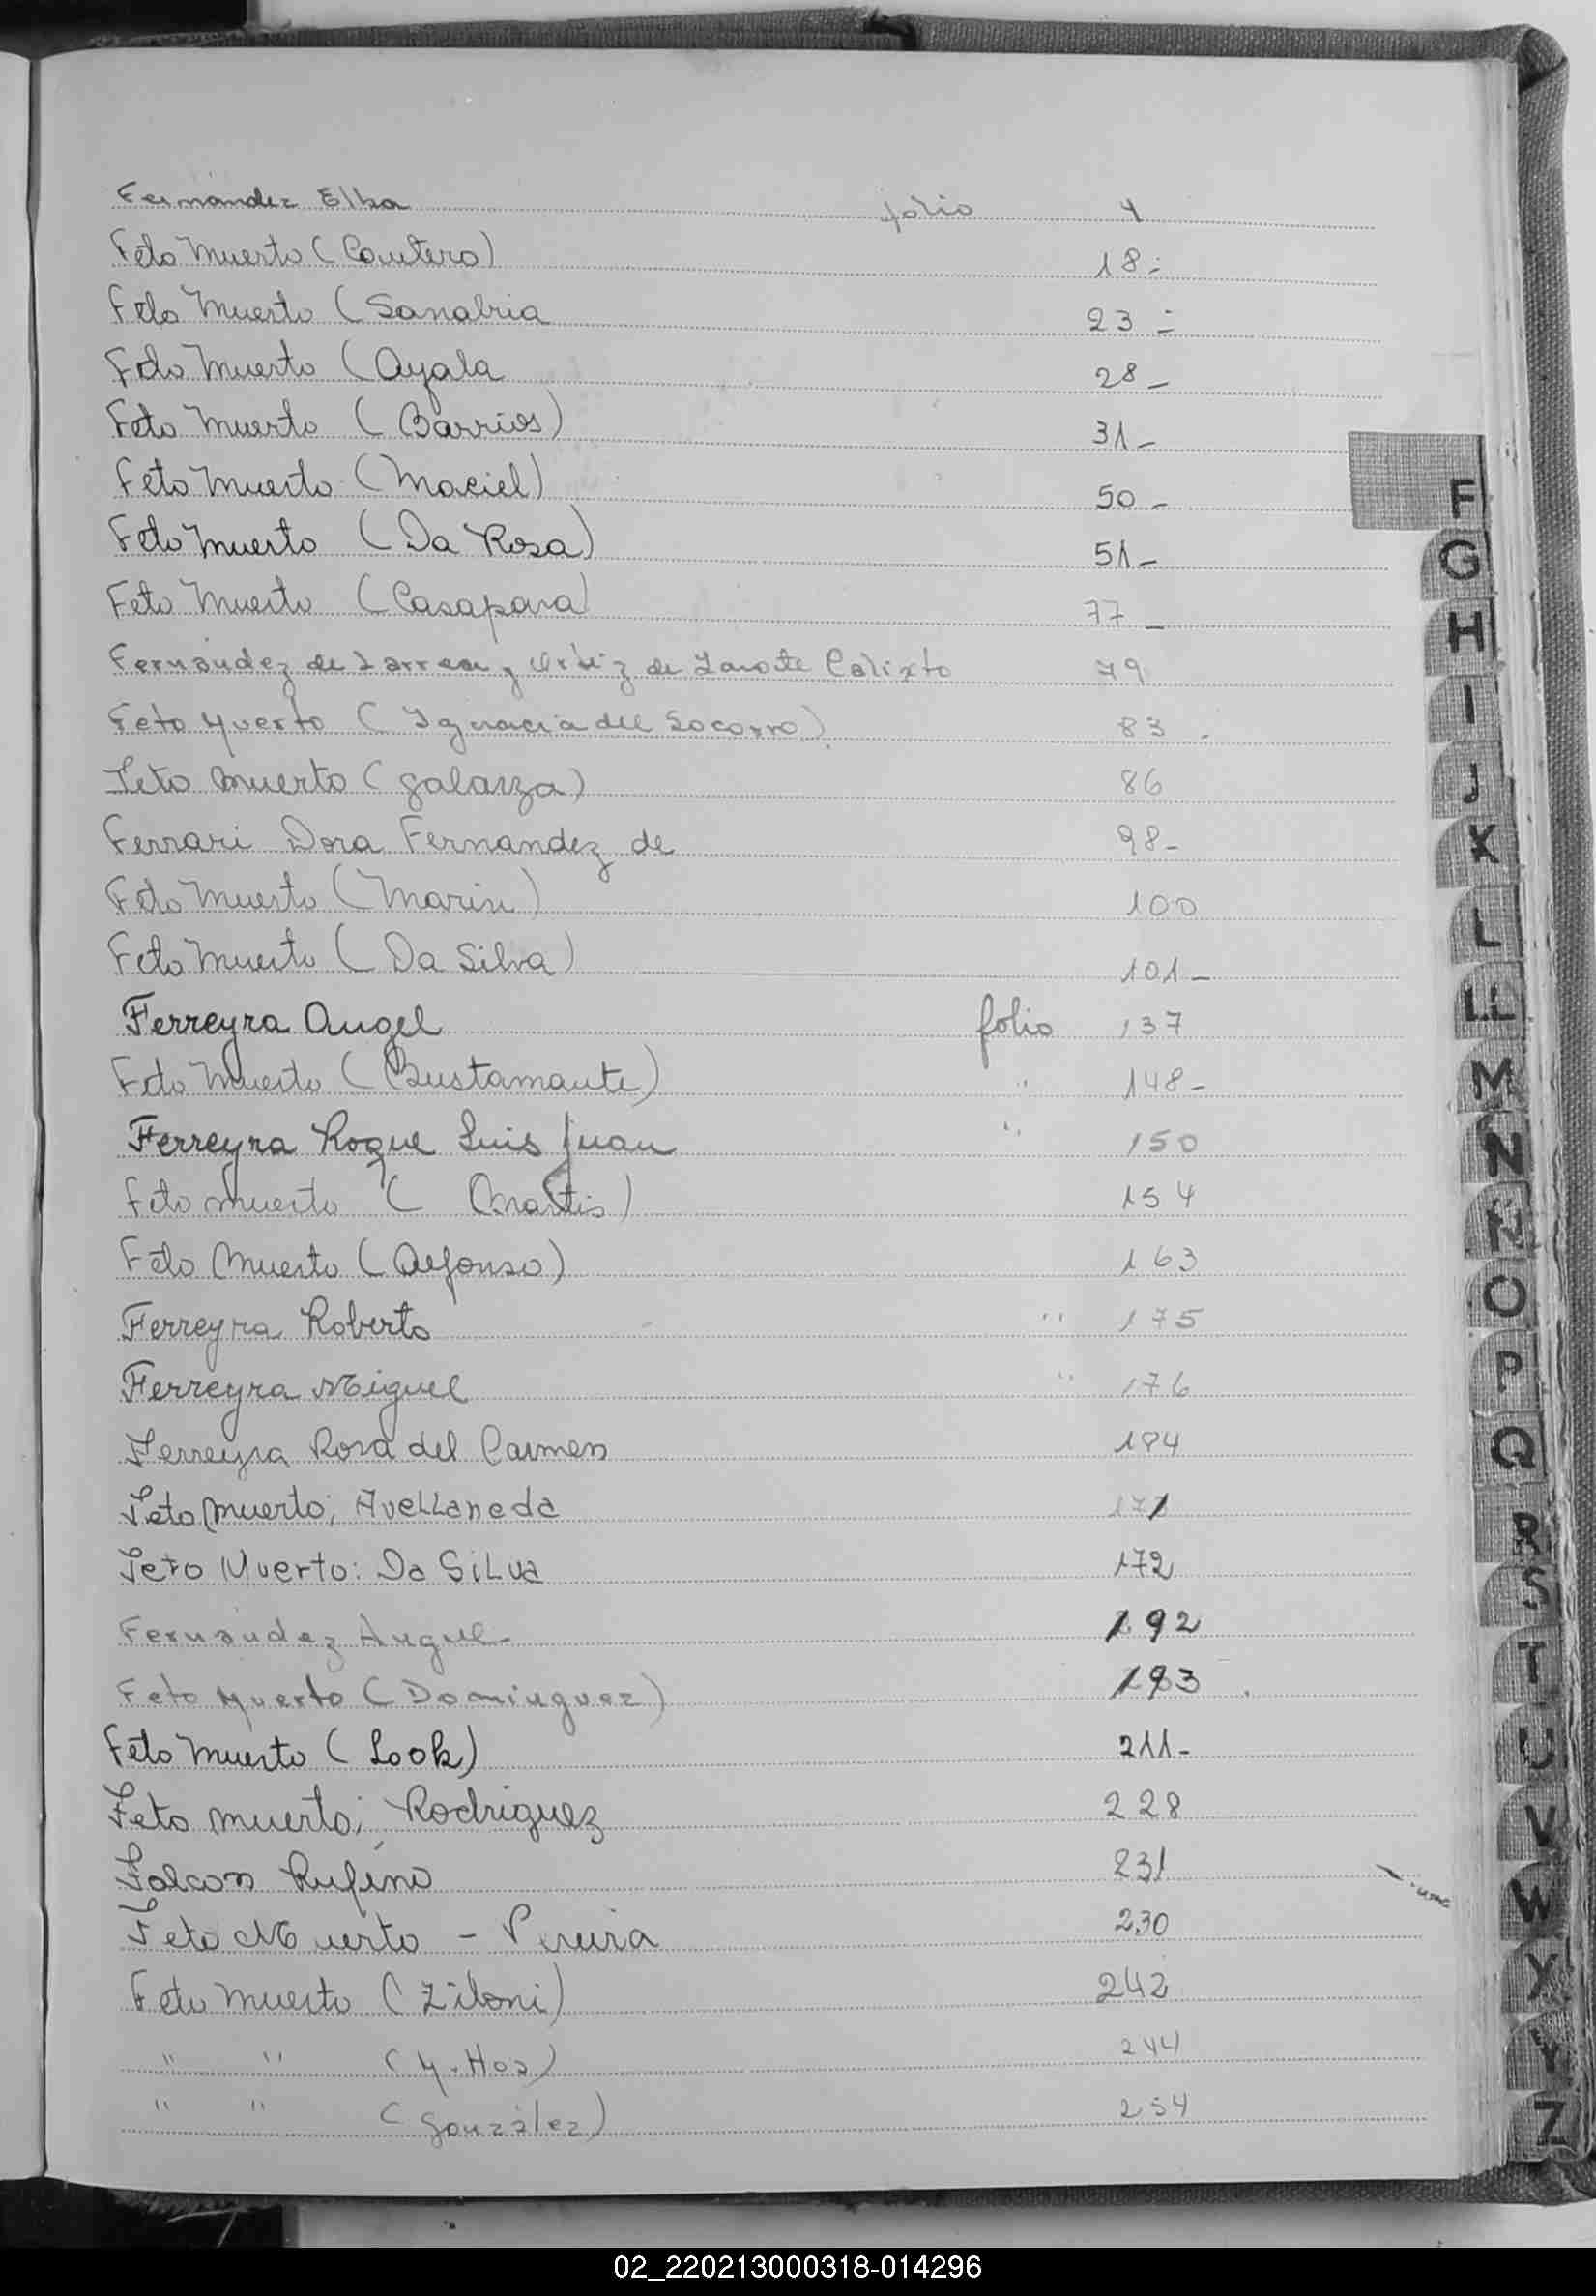 Fernández Elba folio 4
Feto Muerto (Coutero) 18-
Feto Muerto (Sanabria 23-
Feto Muerto (Ayala 28-
Feto Muerto (Barrios) 31-
Feto Muerto (Maciel) 50-
Feto Muerto (Da Rosa) 51-
Feto Muerto (Casapara) 77-
Fernández de Larrea y Ortiz de Calixto 79
Feto Muerto (Ignacia del Socorro) 83
Feto Muerto (Galarza) 86
Ferrari Dora Fernandez de 98-
Feto Muerto (Marin) 100
Feto Muerto (Da Silva) 101-
Ferreyra Angel folio 137
Feto Muerto (Bustamante) " 148-
Ferreyra Roque Luis Juan " 150
Feto muerto ( ) 154
Feto Muerto (Alfonso) 163
Ferreyra Roberto " 175
Ferreyra Miguel " 176
Ferreyra Rosa del Carmen 184
Feto Muerto; Avellaneda 171
Feto Muerto: Da Silva 172
Fernández 192
Feto Muerto (Dominguez) 193
Feto Muerto (Look) 211-
Feto muerto; Rodriguez 228
Falcon Rufino 231
Feto Muerto - Pereira 230
Feto Muerto (Ziloni) 242
" " ( ) 244
" " (González) 254
F
G
H
I
J
K
L
LL
M
N
Ñ
O
P
Q
R
S
T
U
V
W
X
Y
Z
02_220213000318-014296